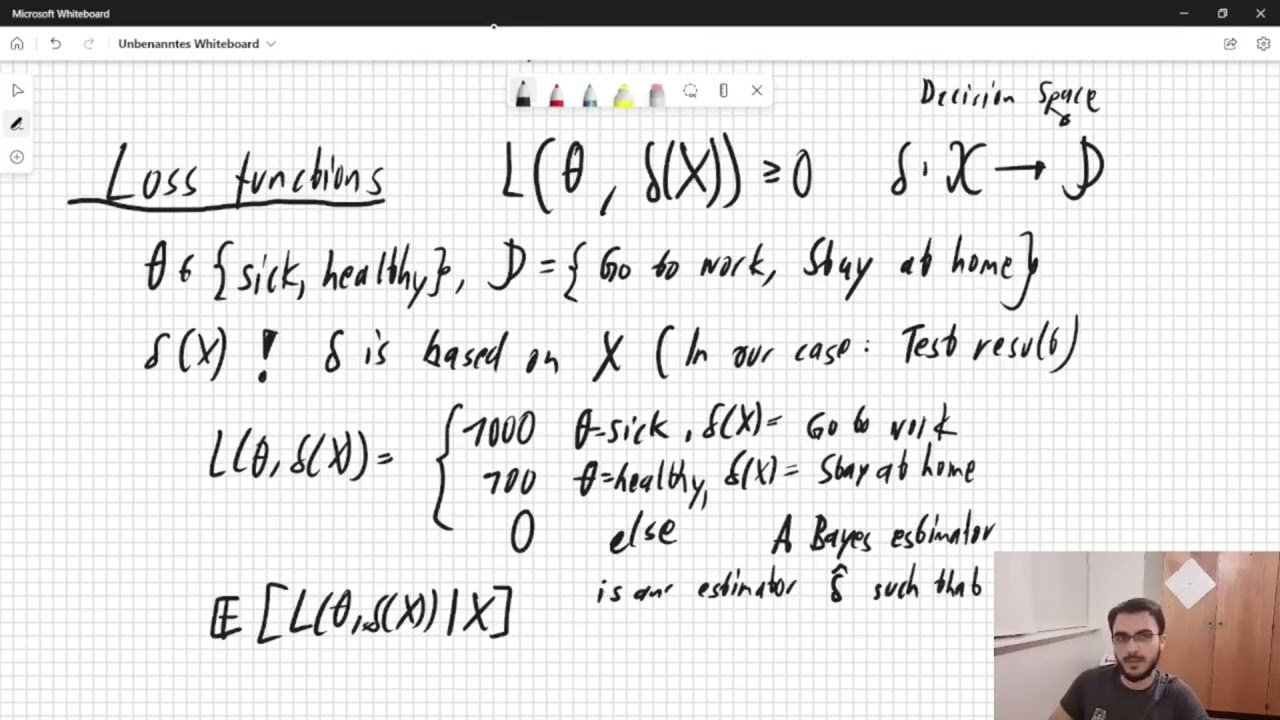 Microsoft Whiteboard
Unbenanntes Whiteboard
Decision Space
Loss functions L(θ, δ(X)) ≥ 0 δ: X → D
θ ∈ {sick, healthy}, D = { Go to work, Stay at home}
δ(X) ! δ is based on X (In our case: Test result)
L(θ, δ(X)) = { 1000 θ=sick, δ(X)= Go to work
100 θ=healthy, δ(X)= Stay at home
0 else
A Bayes estimator
is an estimator δ̂ such that
E [L(θ, δ(X)) | X]